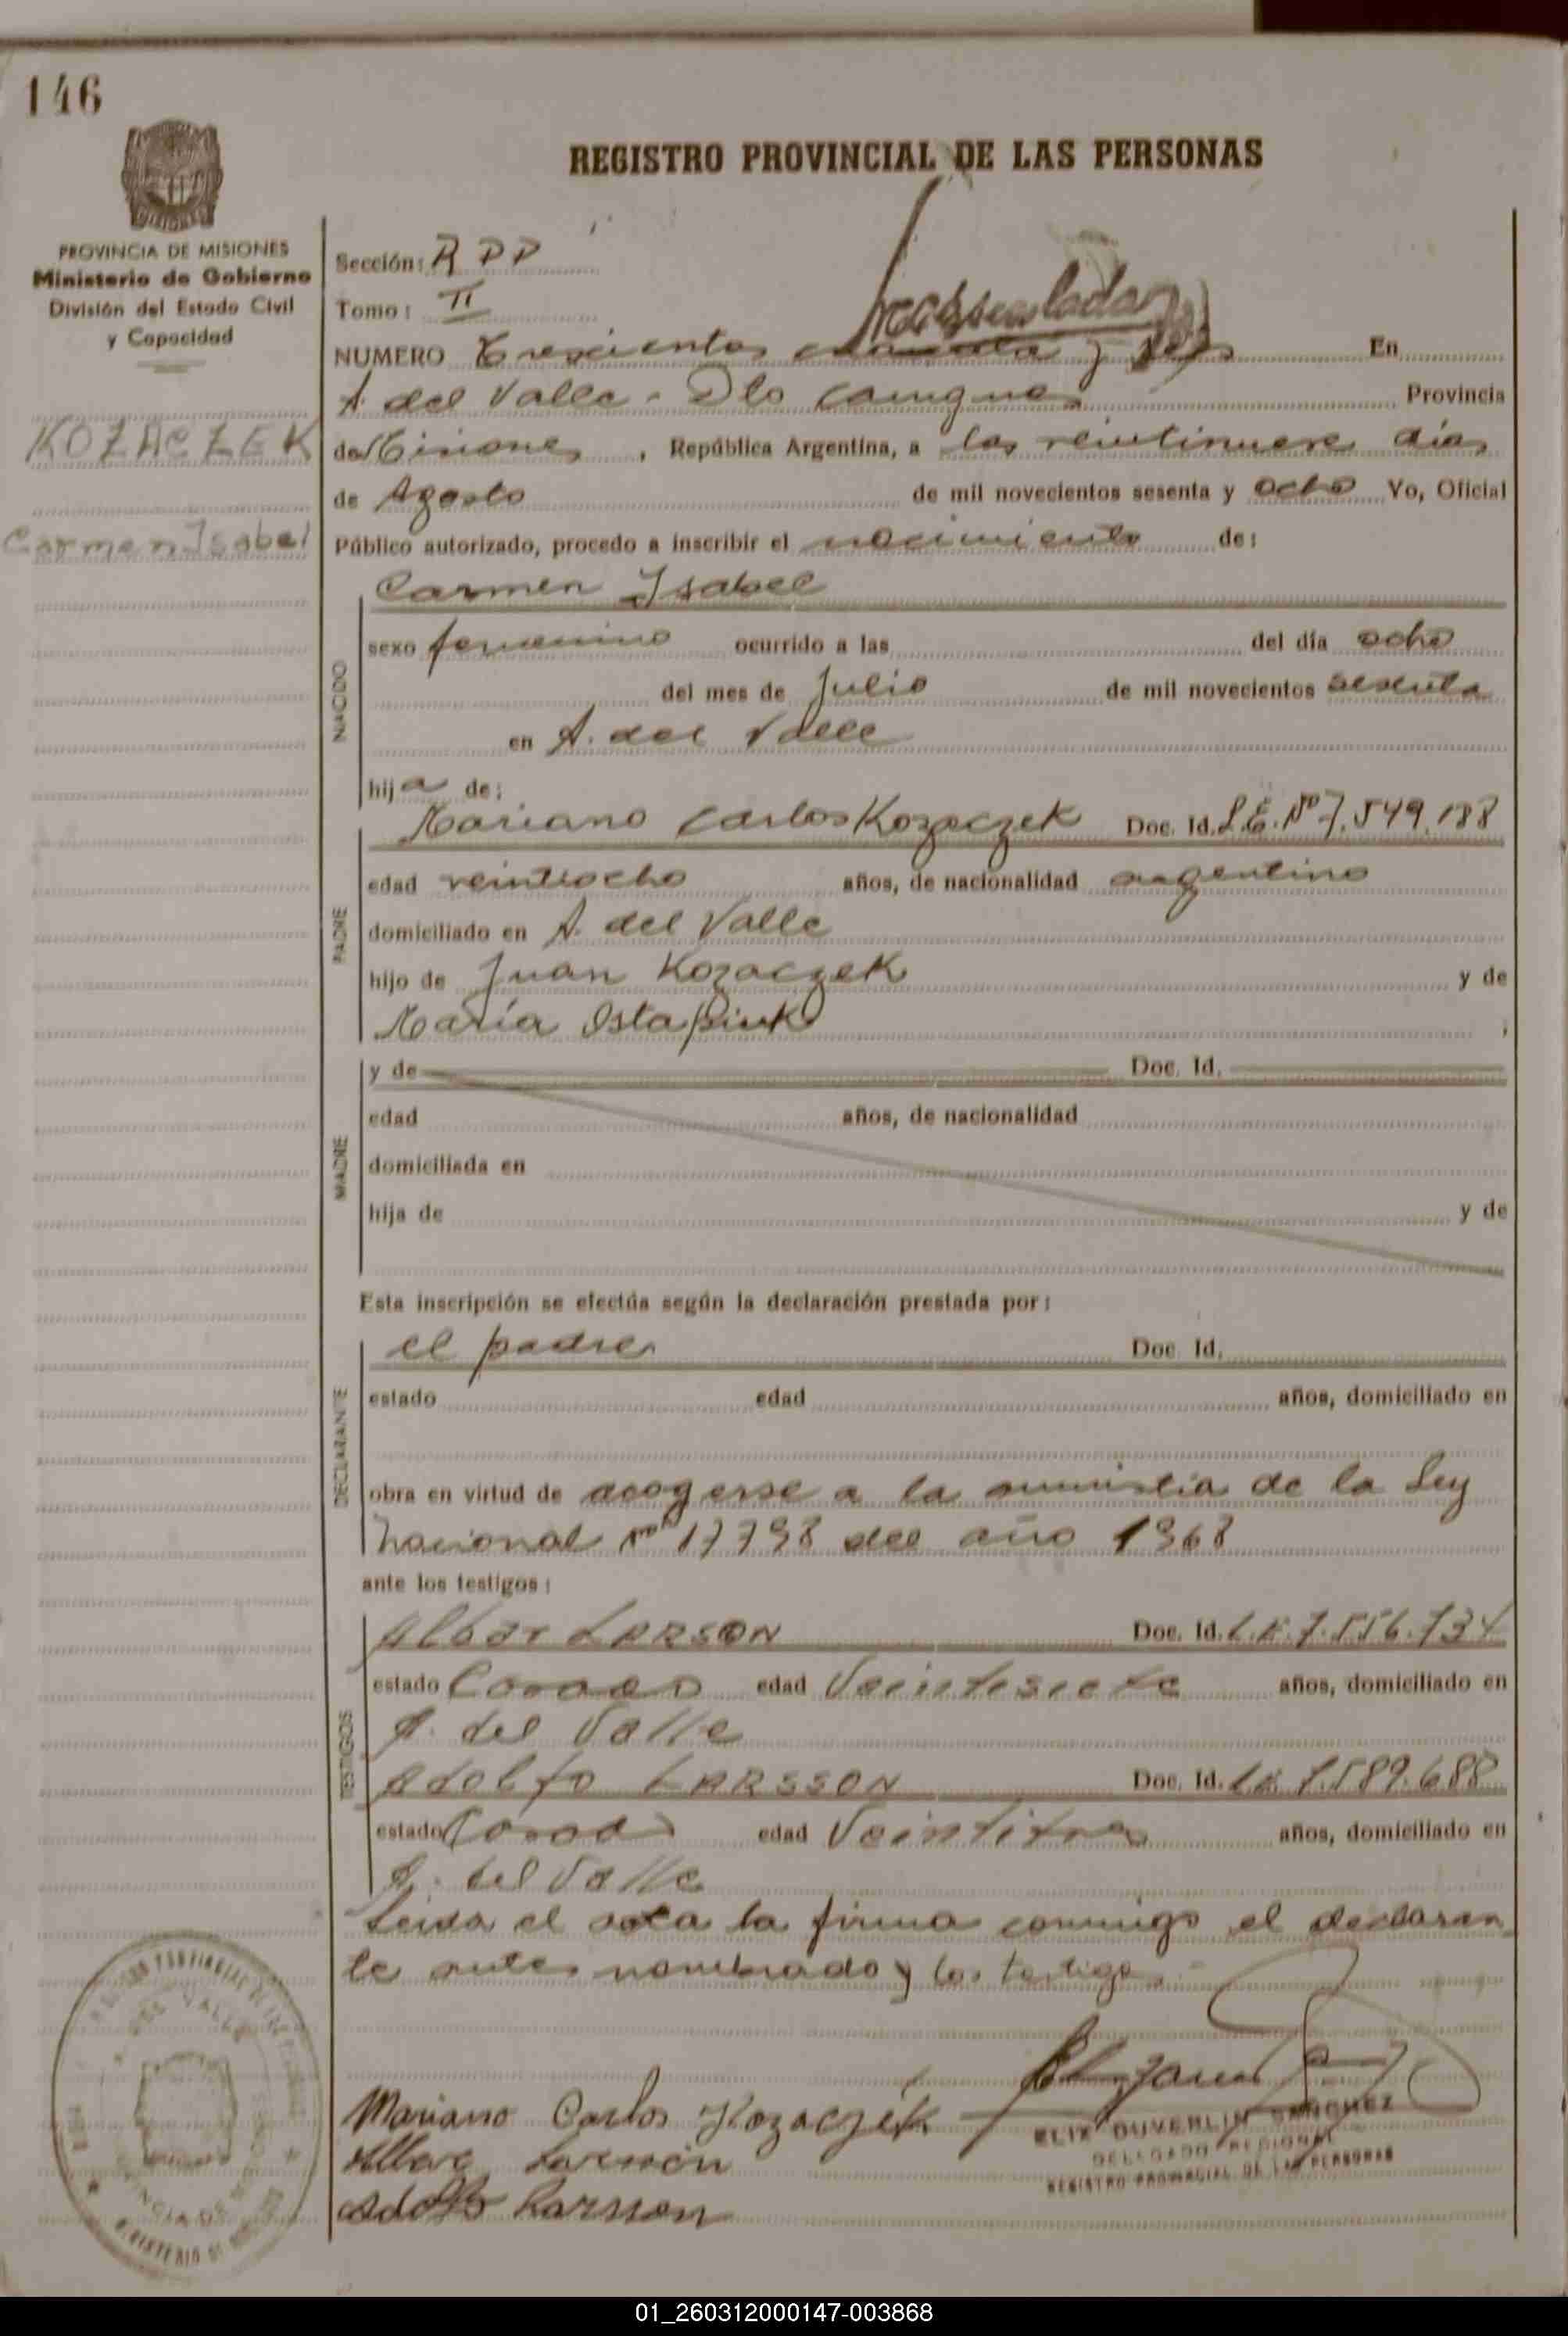 146
REGISTRO PROVINCIAL DE LAS PERSONAS
PROVINCIA DE MISIONES
Ministerio de Gobierno
División del Estado Civil
y Capacidad
KOZACZEK
Carmen Isabel
Sección: R P P
Tomo: II
NUMERO Trescientos y En
A. del Valle - Dto Cainguas Provincia
de Misiones, República Argentina, a los veintinueve días
de Agosto de mil novecientos sesenta y ocho Yo, Oficial
Público autorizado, procedo a inscribir el nacimiento de:
Carmen Isabel
NACIDO
sexo femenino ocurrido a las del día ocho
del mes de Julio de mil novecientos sesenta
en A. del Valle
hija de:
PADRE
Mariano Carlos Kozaczek Doc. Id. L.E. Nº 7.549.188
edad veintiocho años, de nacionalidad argentino
domiciliado en A. del Valle
hijo de Juan Kozaczek y de
María Ostapiuk
MADRE
y de Doc. Id.
edad años, de nacionalidad
domiciliada en
hija de y de
Esta inscripción se efectúa según la declaración prestada por:
DECLARANTE
el padre Doc. Id.
estado edad años, domiciliado en
obra en virtud de acogerse a la amnistia de la Ley
Nacional nº 17798 del año 1968
ante los testigos:
TESTIGOS
Albar LARSON Doc. Id. L.E. 7.556.734
estado Casado edad Veintisiete años, domiciliado en
A. del Valle
Adolfo LARSSON Doc. Id. L.E. 7.589.688
estado Casado edad Veintitres años, domiciliado en
A. del Valle
Leida el acta la firma conmigo el declaran
te antes nombrado y los testigos.
Mariano Carlos Kozaczek
ELIX DUVERLIN SANCHEZ
DELEGADO REGIONAL
REGISTRO PROVINCIAL DE LAS PERSONAS
Larsson
Adolfo Larsson
01_260312000147-003868